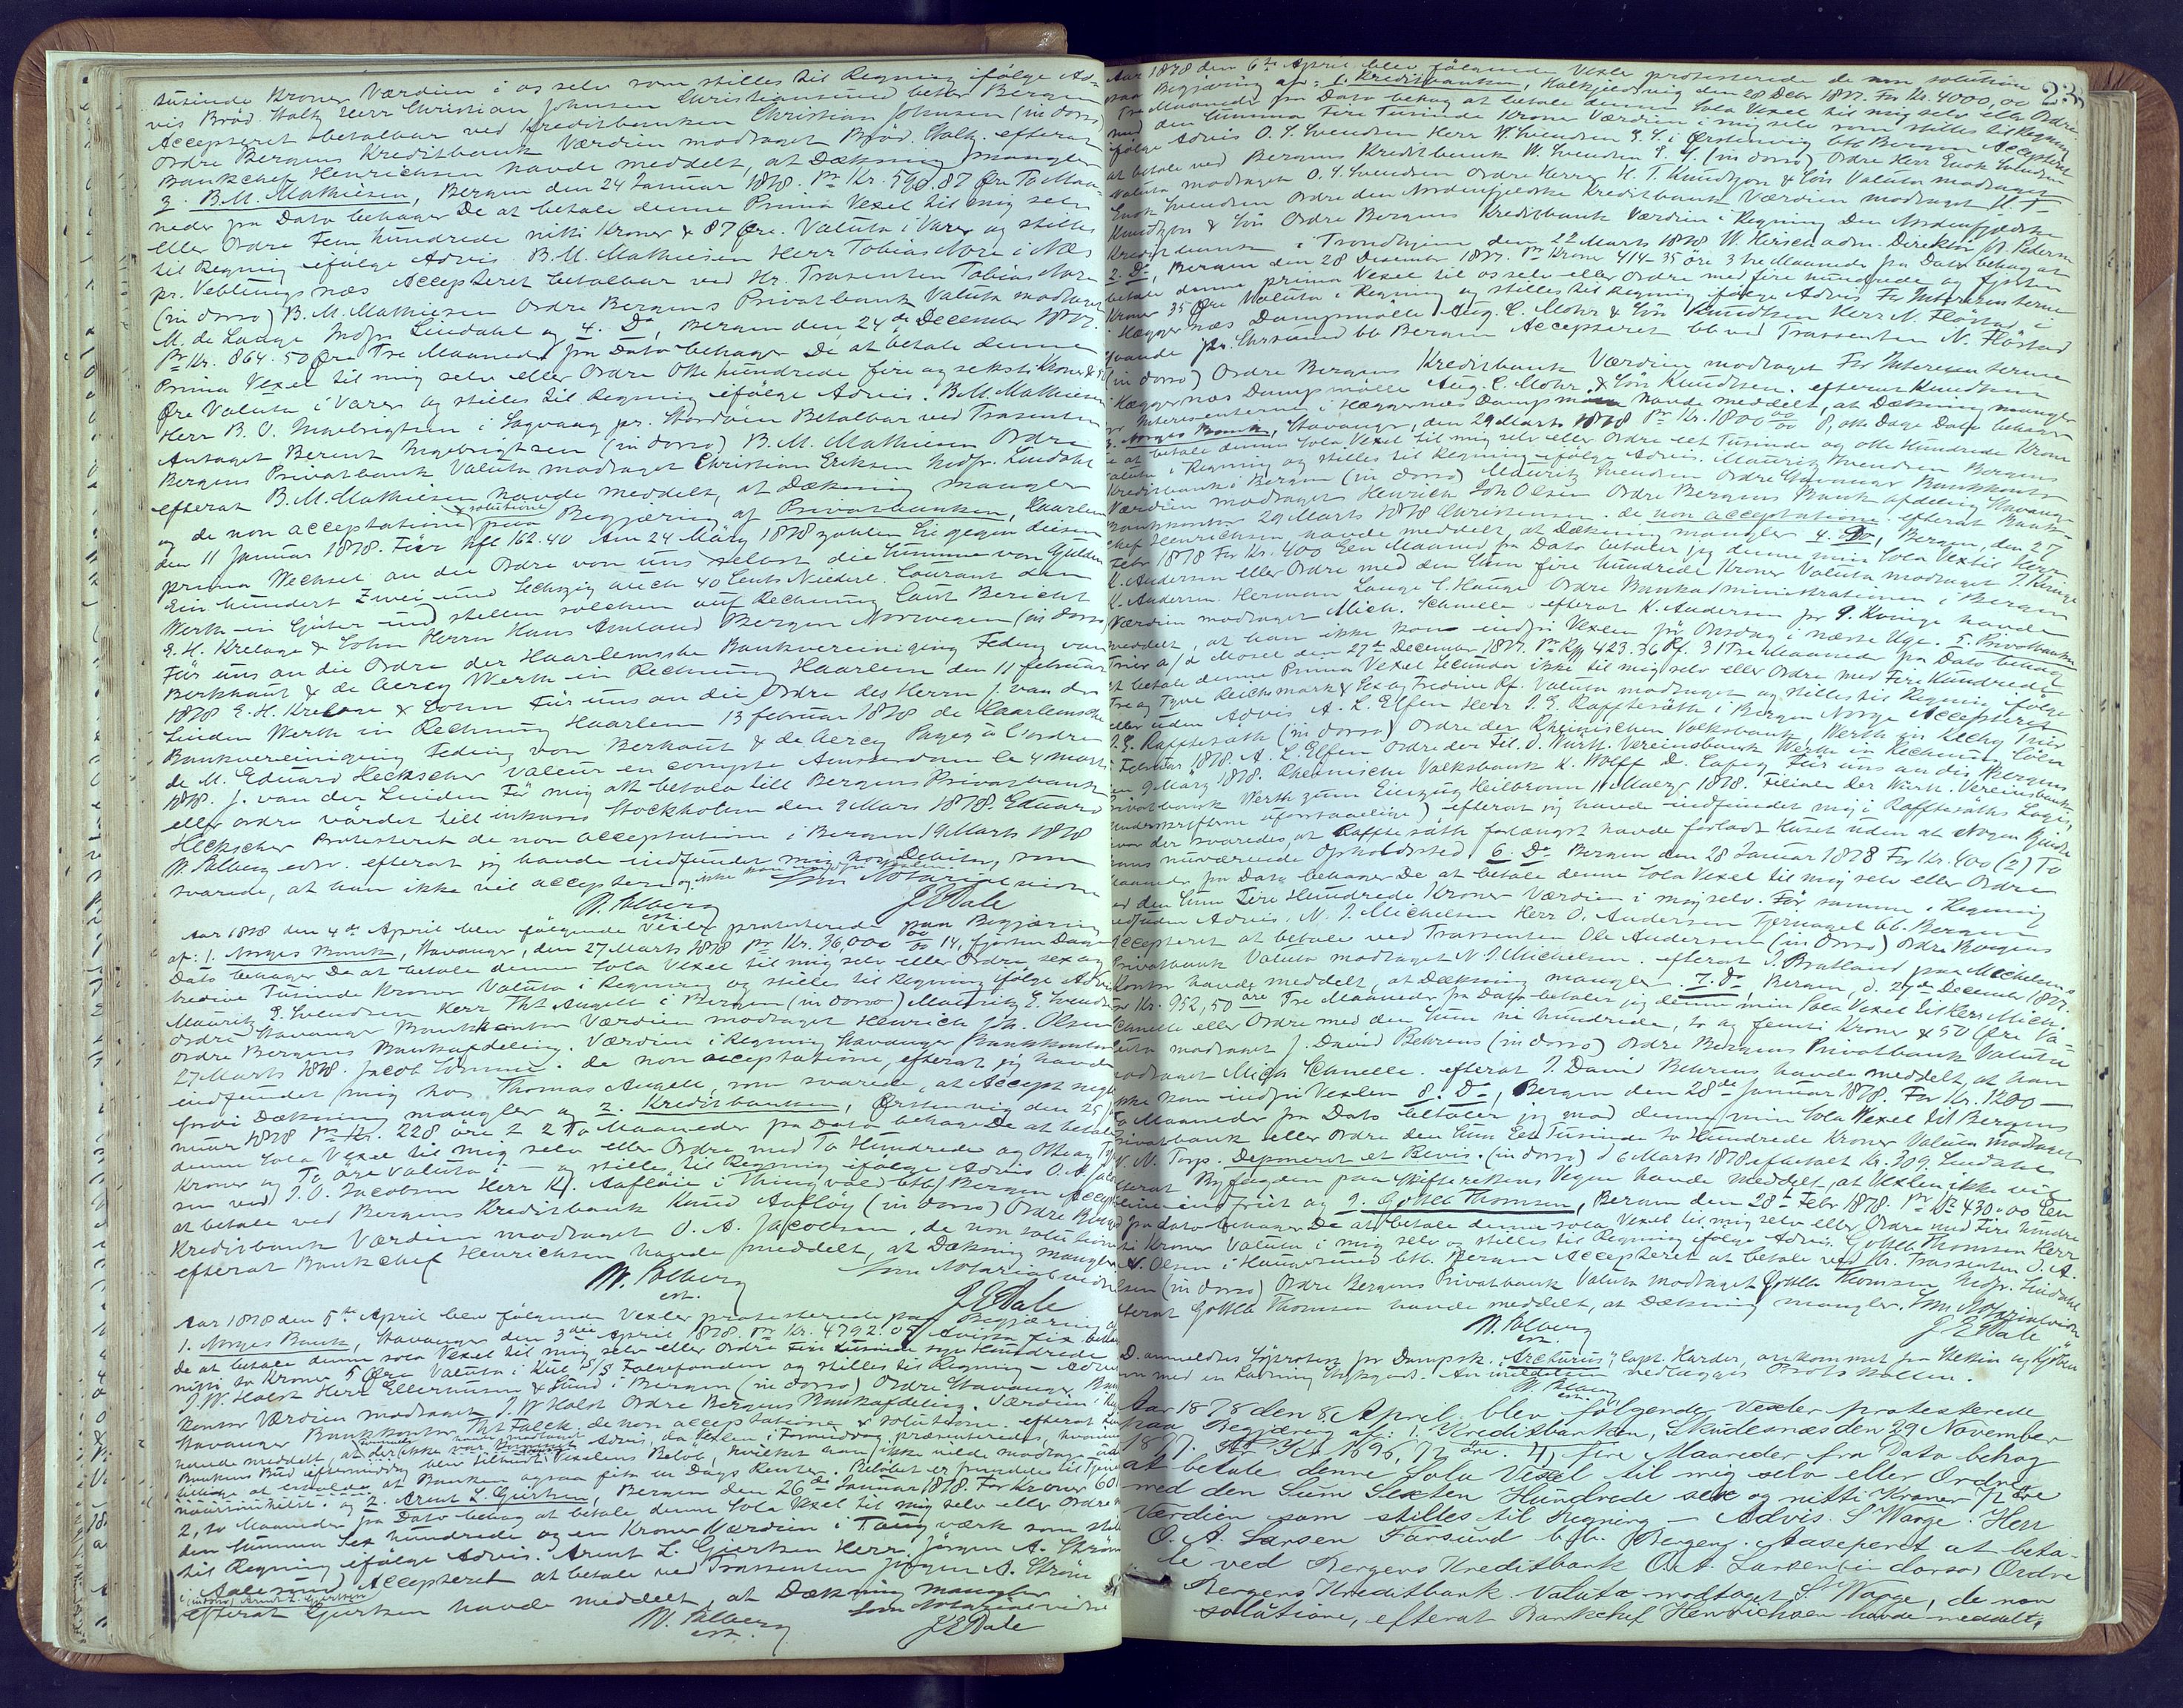 tusinde Kroner Værdien i os selv som stilles til Regning ifølge Ad-
vis Brød. Volk Herr Christian Johnsen Christiansund betbr Bergen
Accepteret at betalbar ved Kreditbanken Christian Johnsen (in dorso)
Ordre Bergens Kreditbank Værdien modtaget Brød. Volk. efterat
Bankchef Henrichsen havde meddelt, at Dækning mangler
3. B. M. Mathiesen, Bergen den 24 Januar 1878. Pr Kr. 590.87 Øre To Maa-
neder fra Dato behager De at betale denne Prima Vexel til mig selv
eller Ordre Fem hundrede nitti Kroner & 87 Øre. Valuta i Varer og stilles
til Regning ifølge Advis B. M. Mathiesen Herr Tobias More i Næs
pr. Veblungsnæs Accepteret betalbar ved Hr. Trasenten Tobias More
(in dorso) B. M. Mathiesen Ordre Bergens Privatbank Valuta modtaget
M. de Lange Indfr Lindahl og 4. Do, Bergen den 24de December 1877.
Pr Kr. 864.50 Øre Tre Maaneder fra Dato behager De at betale denne
Prima Vexel til mig selv eller Ordre Otte hundrede fire og seksti Kroner & 50
Øre Valuta i Varer og stilles til Regning ifølge Advis. B. M. Mathiesen
Herr B. O. Ingebrigtsen i Sagvaag pr. Stordøen Betalbar ved Trasenten
Antaget Berent Ingebrigtsen (in dorso) B. M. Mathiesen Ordre
Bergens Privatbank Valuta modtaget Christian Eriksen Indfr. Lindahl
efterat B. M. Mathiesen havde meddelt, at Dækning mangler
og de non acceptatione & solutione paa Begjæring af Privatbanken, Haarlem
den 11 Januar 1878. Für hfl 162.40 Am 24 März 1878 zahlen Sie gegen diesen
prima Wechsel an die Ordre von uns selbst die Summe von Gulden
Ein hundert Zwei und Sechzig auch 40 Cents Niederl. Courant den
Werth in Güter und stellen solchen auf Rechnung laut Bericht
E. H. Krelage & Sohn Herrn Hans Amland Bergen Norwegen (in dorso)
Für uns an die Ordre der Haarlemsche Bankvereiniging Feding van
Berkhout & de Clercq Werth in Rechnung Haarlem den 11 februar
1878 E. H. Krelage & Sohn Für uns an die Ordre des Herrn J. van der
Linden Werth in Rechnung Haarlem 13 februar 1878 de Haarlemsche
Bankvereiniging Feding von Berkout & de Clercq Payez à l'ordre
de M. Eduard Heckscher valeur en compte Amsterdam le 4 mars
1878. J. van der Linden För mig att betala till Bergens Privatbank
eller ordre värdet till inkasso Stockholm den 9 Mars 1878. Eduard
Heckscher Protesteret de non acceptatione i Bergen 19 Marts 1878
W. Pålberg edv. efterat jeg havde indfundet mig hos Debitor, som
svarede, at han ikke vil acceptere og ikke kan indfri Vexlen
Som Notarialvidne
W. Pålberg J E Dale
cst.
Aar 1878 den 4de April blev følgende Vexler protesterede paa Begjæring
af: 1. Norges Bank, Stavanger, den 27 Marts 1878 Pr Kr. 36,000 00/00 14, fjorten Dage
Dato behager De at betale denne Sola Vexel til mig selv eller Ordre, sex og
tredive Tusinde Kroner Valuta i Regning og stilles til Regning ifølge Advis
Mauritz E. Svendsen Herr Ths Angell i Bergen (in dorso) Mauritz E. Svendsen
Ordre Stavanger Bankkontor Værdien modtaget Henrich Joh. Olsen
Ordre Bergens Bankafdeling. Værdien i Regning Stavanger Bankkontor
27 Marts 1878. Jacob Sømme. de non acceptatione, efterat jeg havde
indfundet mig hos Thomas Angell, som svarede, at Accept negtes
fordi Dækning mangler og 2. Kreditbanken, Ørstenvig den 25 Ja-
nuar 1878 Pr Kr. 228 öre 2 2 To Maaneder fra Dato behager De at betale
denne Sola Vexel til mig selv eller Ordre med To Hundrede og Otte og Tyve
Kroner og To öre Valuta i — og stilles til Regning ifølge Advis O. A. Jacob-
sen ved J. O. Jacobsen Herr K. Aafløie i Thingvold btb. Bergen Accept
at betale ved Bergens Kreditbank Knud Aafløy (in dorso) Ordre Bergens
Kreditbank Værdien modtaget O. A. Jacobsen, de non solutione
efterat Bankchef Henrichsen havde meddelt, at Dækning mangler
Som Notarialvidne
W. Pålberg J E Dale
cst.
Aar 1878 den 5te April blev følgende Vexler protesterede paa Begjæring af
1. Norges Bank, Stavanger den 3die April 1878. Pr Kr. 4792.05 Avista fix behag
De at betale denne sola Vexel til mig selv eller Ordre Fire tusinde syv Hundrede
nitti to Kroner 5 Øre Valuta i Kul S/S Folgefonden og stilles til Regning — Advis
J. W. Holst Herr Ellerhusen & Lund i Bergen (in dorso) Ordre Stavanger Bank
kontor Værdien modtaget J. W. Holst Ordre Bergens Bankafdeling. Værdien i Reg
Stavanger Bankkontor Ths Falck. de non acceptatione & solutione. efterat
havde meddelt, at der ikke Advis, da Vexlen i Formiddag præsenteredes, hvorimod
Bankens Bud eftermiddag blev tilbudt Vexelens Beløb, hvilket han ikke vilde modtage uden
Banken ogsaa fik en Dags Rente. Beløbet er fremdeles til
og 2. Arent L. Giertsen, Bergen den 26de Januar 1878. For Kroner 601
2, to Maaneder fra Dato behag at betale denne Sola Vexel til mig selv eller Ordre
den Summa Sex hundrede og en Kroner Værdien i Taugværk som stilles
til Regning ifølge Advis. Arent L. Giertsen Herr Jørgen A. Strøm
i Aalesund Accepteret at betale ved Trassenten Jörgen A. Strøm
(in dorso) Arent L. Giertsen
efterat Giertsen havde meddelt, at Dækning mangler
Som Notarialvidne
W. Pålberg J E Dale
cst.
23
Aar 1878 den 6te April blev følgende Vexler protesterede de non solutione
paa Begjæring af: 1. Kreditbanken, den 28 Debr 1877. For Kr. 4000,00
Tre Maaneder fra Dato behag at betale denne Sola Vexel til mig selv eller Ordre
med den Summa Fire Tusinde Kroner Værdien i mig selv som stilles til Regning
ifølge Advis O. S. Svendsen Herr W. Svendsen E. S. i Ørstenvig btb Bergen Accepteret
at betale ved Bergens Kreditbank W. Svendsen E. S. (in dorso) Ordre Herr Enok Svendsen
Valuta modtaget O. S. Svendsen Ordre Herrer H. T. Knudtzon & Søn Valuta modtaget
Enok Svendsen Ordre den Nordenfjeldske Kreditbank Værdien modtaget H. T.
Knudtzon & Sön Ordre Bergens Kreditbank Værdien i Regning Den Nordenfjeldske
Kreditbank i Trondhjem den 22 Marts 1878 W. Hirsch adm. Direktör Pedersen
2. Do, Bergen den 28 December 1877. Pr Kroner 414-35 öre 3 tre Maaneder fra Dato behag at
betale denne prima Vexel til os selv eller Ordre med fire hundrede og fjorten
Kroner 35 Øre Valuta i Regning og stilles til Regning ifølge Advis For Interessenterne
i Hæggernæs Dampmölle Aug. C. Mohr & Sön Knudtsen Herr N. Flöstad i
pr. Chrsund bb Bergen Accepteret bb ved Trassenten N. Flöstad
(in dorso) Ordre Bergens Kreditbank Værdien modtaget For Interessenterne
i Hæggernæs Dampmölle Aug. C. Mohr & Sön Knudtsen. efterat Knudtsen
for Interessenterne i Hæggernæs Dampmölle havde meddelt, at Dækning mangler
3. Norges Bank, Stavanger, den 29 Marts 1878 Pr Kr. 1800 00/00 8, otte Dage Dato behager
De at betale denne Sola Vexel til mig selv eller Ordre eet Tusinde og otte Hundrede Kroner
Valuta i Regning og stilles til Regning ifølge Advis. Mauritz Svendsen Bergens
Kreditbank i Bergen (in dorso) Mauritz Svendsen Ordre Stavanger Bankkontor
Værdien modtaget Henrich Joh Olsen Ordre Bergens Bankafdeling Stavanger
Bankkontor 29 Marts 1878 Christensen. de non acceptatione efterat Bank-
chef Henrichsen havde meddelt, at Dækning mangler 4. Do, Bergen, den 27
Febr 1878 For Kr. 400 Een Maaned fra Dato betaler jeg denne min Sola Vexel til Herr
K. Andersen eller Ordre med den Sum fire hundrede Kroner Valuta modtaget J. Kvinge
K. Andersen. Herman Lange C. Hauge Ordre Bankadministrationen i Bergen
Værdien modtaget Mich. Schnelle. efterat K. Andersen for J. Kvinge havde
meddelt, at han ikke kan indfri Vexlen för Onsdag i næste Uge. 5. Privatbanken
Trier a/d Mosel den 27de December 1877. Pr Rm 423.36 Pf. 3 Tre Maaneder fra Dato behag
at betale denne Prima Vexel Secunda ikke til mig selv eller Ordre med Fire Hundrede
Tre og Tyve Reichsmark & Sex og Tredive Pf. Valuta modtaget og stilles til Regning ifølge
eller uden Advis A. L. Elfen Herr J. G. Raffteräth i Bergen Norge Accepteret
J. G. Raffteräth (in dorso) Ordre der Rheinischen Volksbank, Werth in Rechg Trier
Februar 1878. A. L. Elfen Ordre der Fil. d. Württ. Vereinsbank Werth in Rechnung Cöln
den 9 März 1878. Rheinische Volksbank K. Wolff D. Cafey Für uns an die Bergens
Privatbank Werth zum Einzug Heilbronn 11 Maerz 1878. Filiale der Württ. Vereinsbank
(Underskrifterne uforstaaelige) efterat jeg havde indfundet mig i Raffteräths Logi,
hvor der svaredes, at Raffteräth forlængst havde forladt Huset uden at Nogen kjendte
hans nuværende Opholdssted 6. Do Bergen den 28 Januar 1878 For Kr. 400 (2) To
Maaneder fra Dato behager De at betale denne Sola Vexel til mig selv eller Ordre
med den Sum Fire Hundrede Kroner Værdien i mig selv. Før samme i Regning
Advis. N. J. Michelsen Herr O. Andersen Tjernagel bb. Bergen
Accepteret at betale ved Trassenten Ole Andersen (in dorso) Ordre Bergens
Privatbank Valuta modtaget N. J. Michelsen. efterat J. Bratland paa Michelsens
Kontor havde meddelt, at Dækning mangler. 7. Do, Bergen, d. 27de December 1877.
For Kr. 952,50 øre Tre Maaneder fra Dato betaler jeg denne min Sola Vexel til Herr Mich.
Schnelle eller Ordre med den Sum ni hundrede, to og femti Kroner & 50 Øre Va-
luta modtaget J. David Behrens (in dorso) Ordre Bergens Privatbank Valuta
modtaget Mich Schnelle. efterat J. David Behrens havde meddelt, at han
ikke kan indfri Vexlen 8. Do, Bergen den 28de Januar 1878. For Kr. 1200 —
To Maaneder fra Dato betaler jeg mod denne min Sola Wexel til Bergens
Privatbank eller Ordre den Sum Eet Tusinde to Hundrede Kroner Valuta modtaget
N. N. Torp. Deponeret et Bevis. (in dorso) d 6 Marts 1878 afbetalt Kr. 309. Lindahl
efterat Byfogden paa Skifterettens Vegne havde meddelt, at Vexlen ikke vil
blive indfriet og 9. Gottlb Thomsen, Bergen den 28de Febr 1878. Pr Kr 430.00 Een
fra dato behager De at betale denne sola Vexel til mig selv eller Ordre med Fire hundre
ti Kroner Valuta i mig selv og stilles til Regning ifølge Advis. Gottlb. Thomsen Herr
A. Olsen i Haugesund btb. Bergen Accepteret at betale ved Hr. Trassenten O. A.
Olsen (in dorso) Ordre Bergens Privatbank Valuta modtaget Gottlb Thomsen Indfr. Lindahl
efterat Gottlb Thomsen havde meddelt, at Dækning mangler. Som Notarialvidne
W. Pålberg J E Dale
cst.
D. anmeldtes Söprotest for Dampsk. "Arcturus", Capt. Harder, ankommet fra Stettin og Kjöben
havn med en Ladning Stykgods. Anmeldelsen vedlægges Protokollen.
W. Pålberg
cst.
Aar 1878 den 8. April blev følgende Vexler protesterede
paa Begjæring af: 1. Kreditbanken, Skudesnæs den 29 November
1877. Pr Kr 1696, 72 öre. 4, fire Maaneder fra Dato behag
at betale denne Sola Vexel til mig selv eller Ordre
med den Sum Sexten Hundrede sex og nitti Kroner 72 öre
Værdien som stilles til Regning — Advis. S Waage. Herr
O. A. Larsen Farsund btb. Bergen. Acsepteret at beta-
le ved Bergens Kreditbank O. A. Larsen (in dorso) Ordre
Bergens Kreditbank. Valuta modtaget S. Waage, de non
solutione, efterat Bankchef Henrichsen havde meddelt,